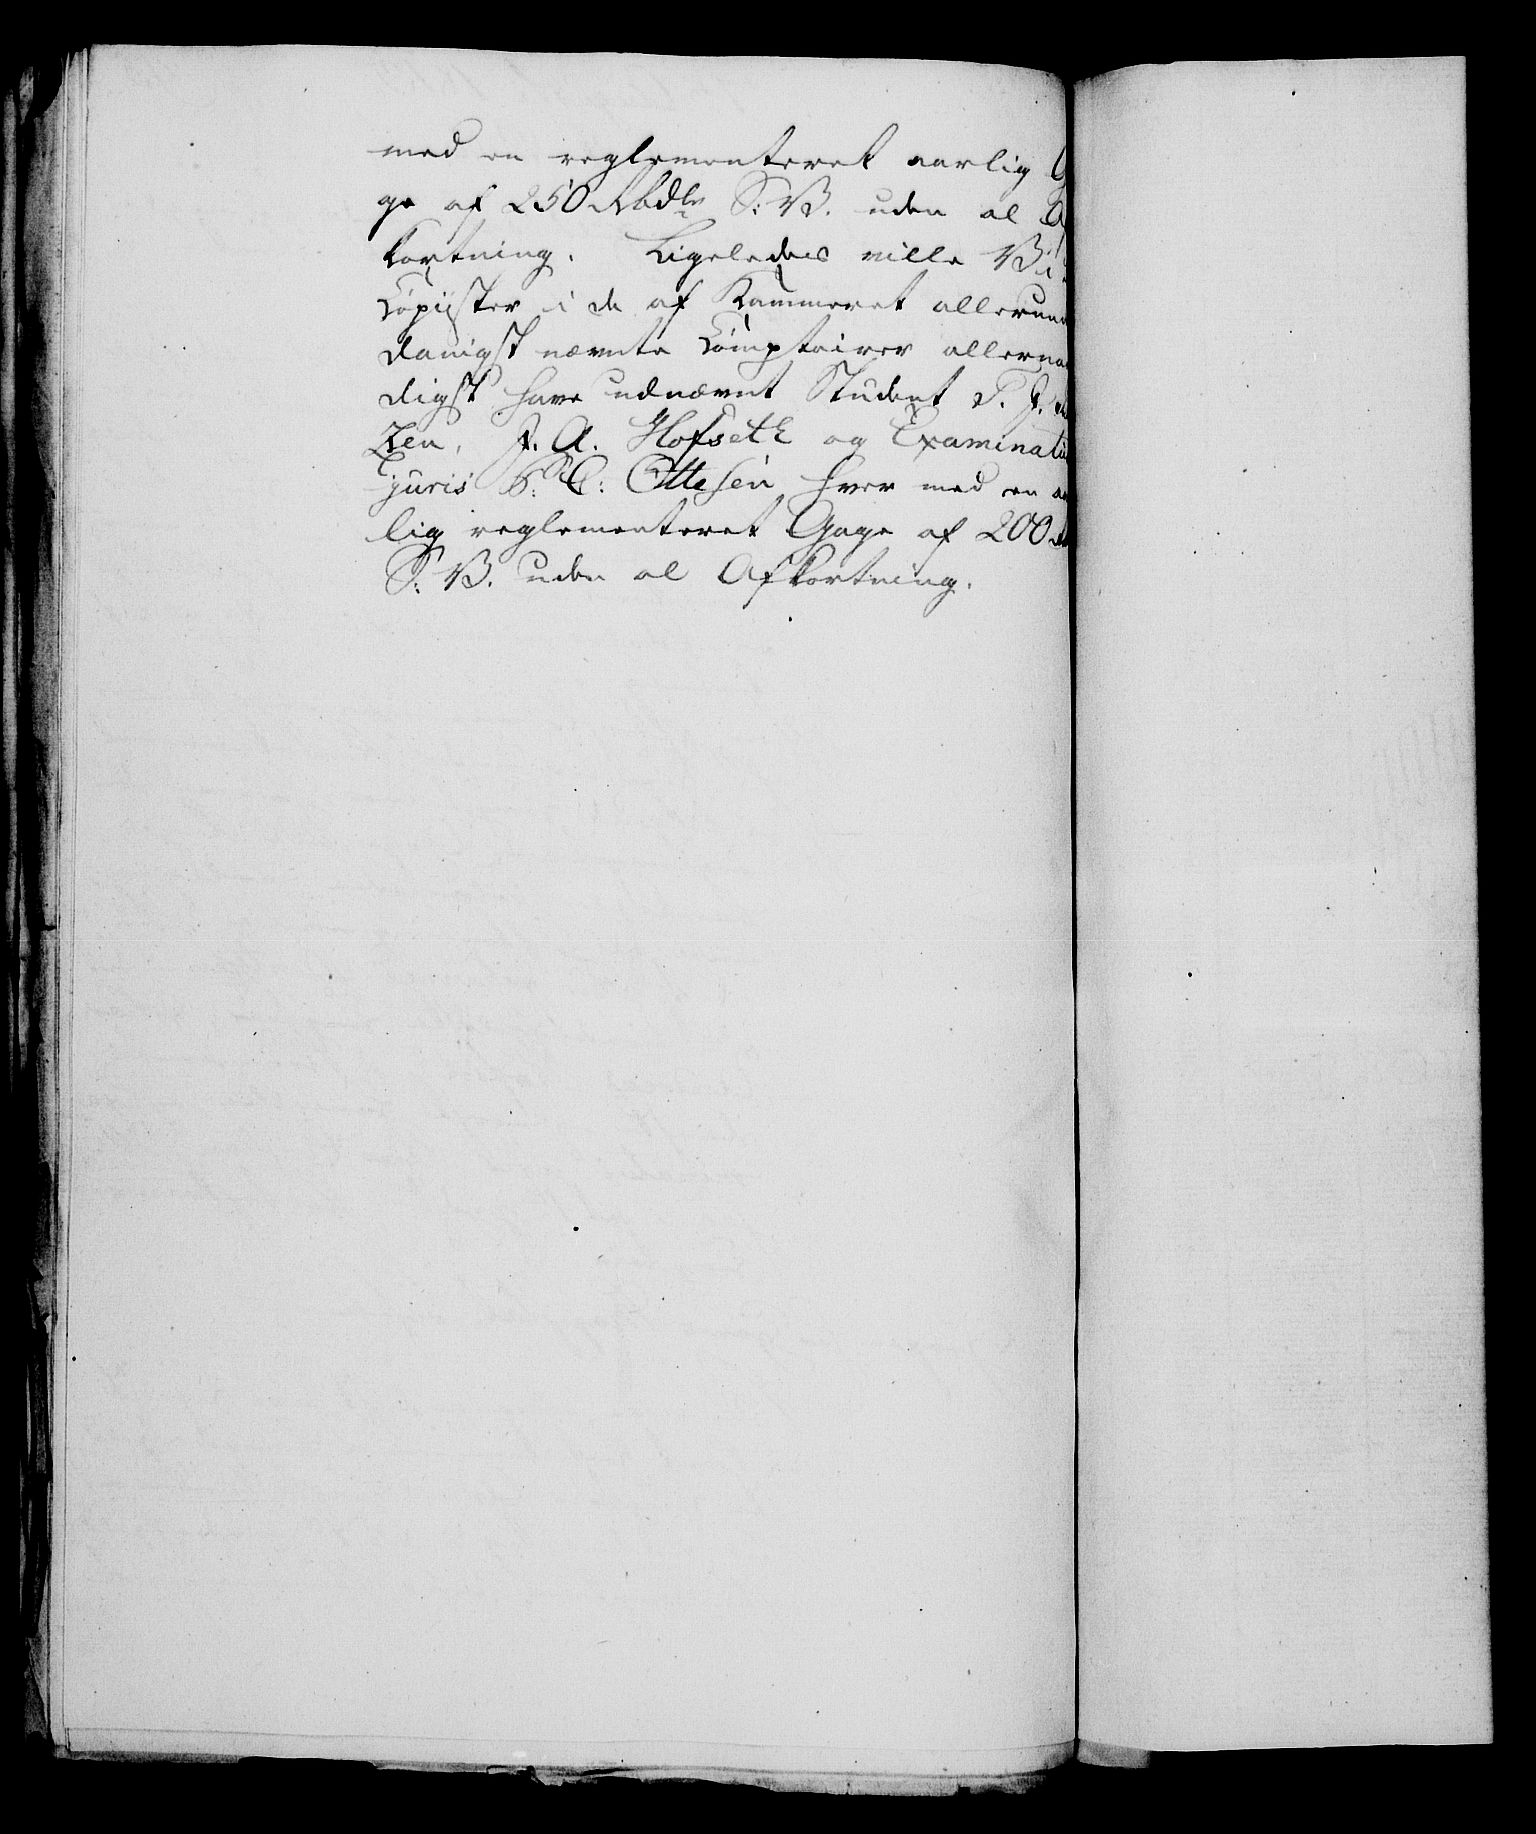 med en reglementeret aarlig G
ge af 250 Rbdlr S: V. uden al A
kortning. Ligeledes ville Vi
Copiister i de af Kammeret allerun
danigst nævnte Comptoirer allernaa
digst have udnævnt Student P. J.
zen, J. A. Hofseth og Examinatus
juris P. C. Ottesen hver med en aa
lig reglementeret Gage af 200
S: V. uden al Afkortning.